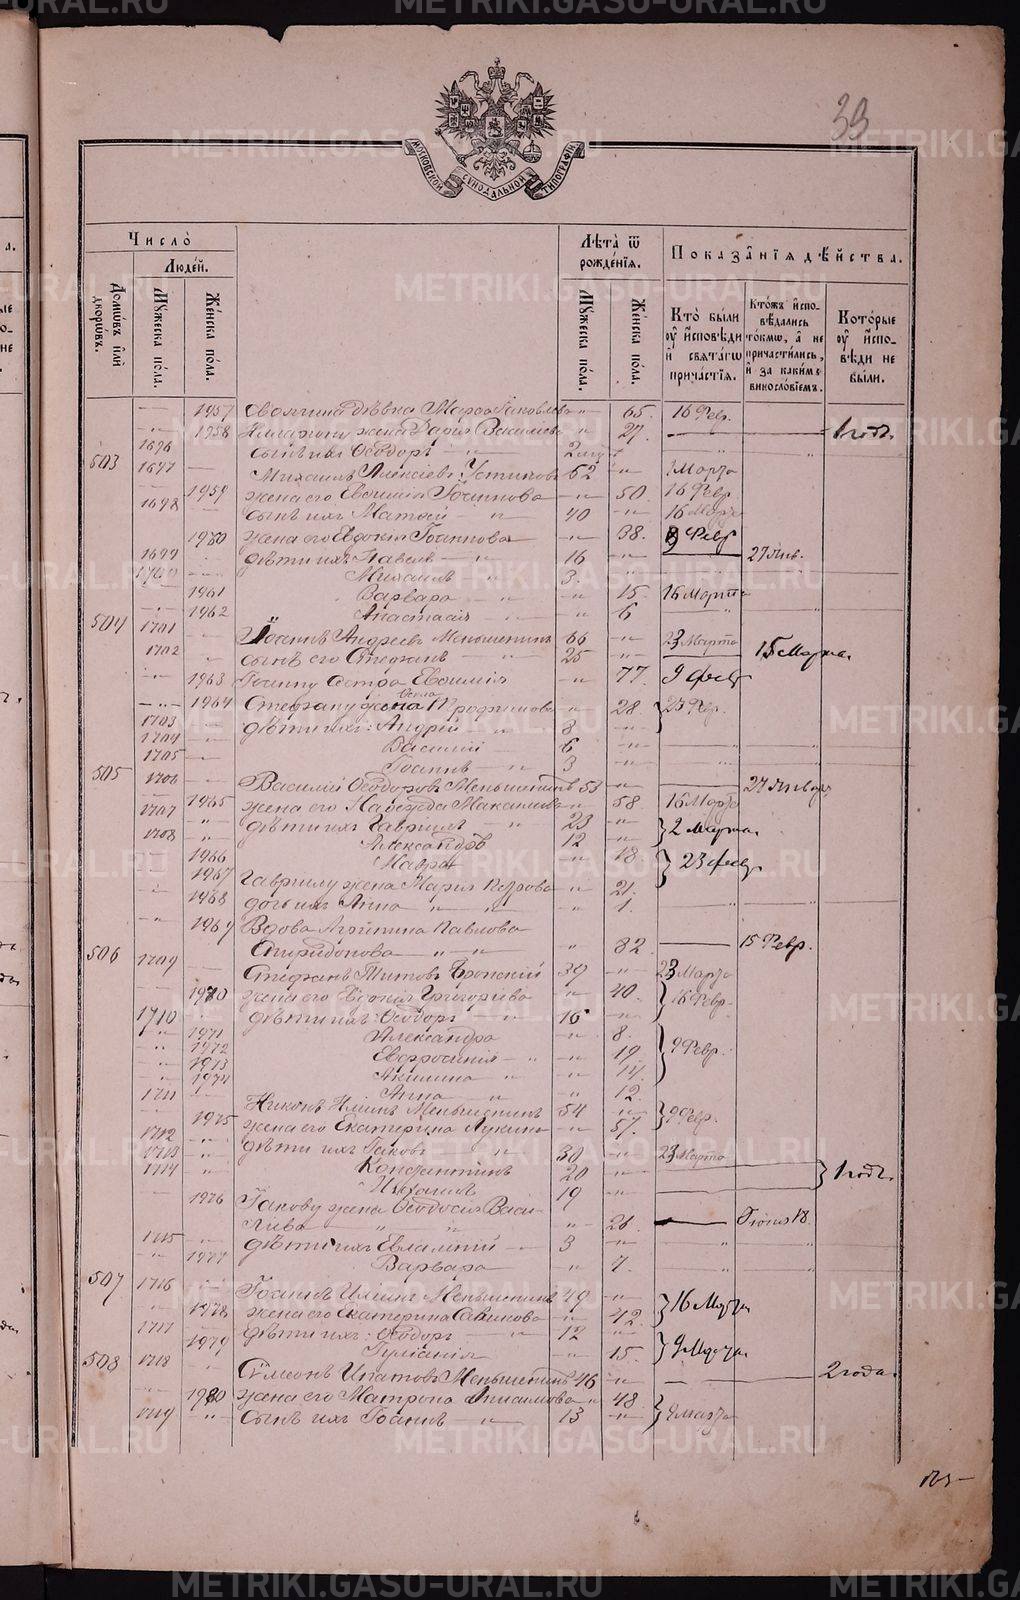 39
МОСКОВСКОЙ СѴНОДАЛЬНОЙ ТИПОГРАФІИ
Число̀
Людéй.
Домѡ́въ и҆лѝ дворѡ́въ.
Мꙋ́жеска по́ла.
Же́нска по́ла.
Лѣ́та ѿ рожде́нїѧ.
Мꙋ́жеска по́ла.
Же́нска по́ла.
Показа̑нїѧ дѣ́йства.
Кто̀ бы́ли ѹ҆ и҆́сповѣди и҆ свѧта́гѡ прича́стїѧ.
Кто́жъ и҆спо-вѣ́дались то́кмѡ, а҆ не причасти́лись, и҆ за каки́мъ виносло́вїемъ.
Кото́рые ѹ҆ и҆́спо-вѣди не бы́ли.
1957 дѣвка Марѳа Яковлева " 65. 16 Февр.
1958 жена Дарія Василіева " 27. — 1 годъ.
1696 сынъ ихъ Ѳеодоръ — " —
503 1697 Михаилъ Алексіевъ Устиновъ 62 " Марта
1959 жена его Евѳимія Іоаннова — " — 50. 16 Февр
1698 сынъ ихъ Матѳей — " — 40 " 16 Марта
1960 жена его Евдокія Іоаннова — " — 38. 9 Февр
1699 дѣти ихъ Павелъ — " — 16 — " — 27 Янв.
1700 Михаилъ " 3.
1961 Варвара — " — 15. 16 Марта
1962 Анастасія — " — 6
504 1701 Іоаннъ Андреевъ Меньшенинъ 66 — " — 23 Марта
1702 сынъ его Стефанъ — " — 25 — " — 15 Марта
1963 Іоанну сестра Евѳимія — " — 77. 9 февр
1964 Стефану жена Трофимова " 28 23 Фев.
1703 дѣти ихъ: Андрей " 8
1704 Василій — 6
1705 Іоаннъ — 3
505 1706 Василій Ѳеодоровъ Меньшенинъ 53 — " — 27 Января
1707 1965 жена его Надежда Максимова " 58. 16 Марта
" дѣти ихъ Гавріилъ — " 23 2 Марта
1708 Александръ 12
1966 Мавра " 18 23 февр
1967 Гавріилу жена Марія Петрова — " 21.
1968 дочь ихъ Анна — " 1.
1969 Вдова Агрипина Павлова
Спиридонова — " — " 82. — 15 Февр.
506 1709 Стефанъ Титовъ 39 — " — 23 Марта
1970 жена его Евдокія Григоріева " 40. 16 Февр.
1710 дѣти ихъ: Ѳеодоръ " 16
1971 Александра — " 8. 9 Февр.
1972 Евфросинія — " — 19
1973 Акилина — " — 14.
1974 Анна — " 12.
1711 Никонъ Ильинъ Меньшенинъ 54 — " — 9 Февр.
1975 жена его Екатерина Лукина — " — 57.
1712 дѣти ихъ Іаковъ " 30 — " — 23 Марта
1713 Константинъ 20 — " — 1 годъ.
1714 Михаилъ 19
1976 Іакову жена Ѳеодосія Васи-
ліева " " — " — 26 — Іюня 18.
1715 дѣти ихъ Евлампій — 3
1977 Варвара — " 7
507 1716 Іоаннъ Ильинъ Меньшенинъ 49 — " — 16 Марта
1978 жена его Екатерина Саввинова — " 42.
1717 дѣти ихъ: Ѳеодоръ — " — 12 9 Марта
1979 Іуліанія — " — 15.
508 1718 Сѵмеонъ Ипатовъ Меньшенинъ 46 — " — 2 года.
1980 жена его Матрона Анисимова " 48. 9 Марта
1719 " сынъ ихъ Іоаннъ — " — 13 — " —
METRIKI.GASO-URAL.RU